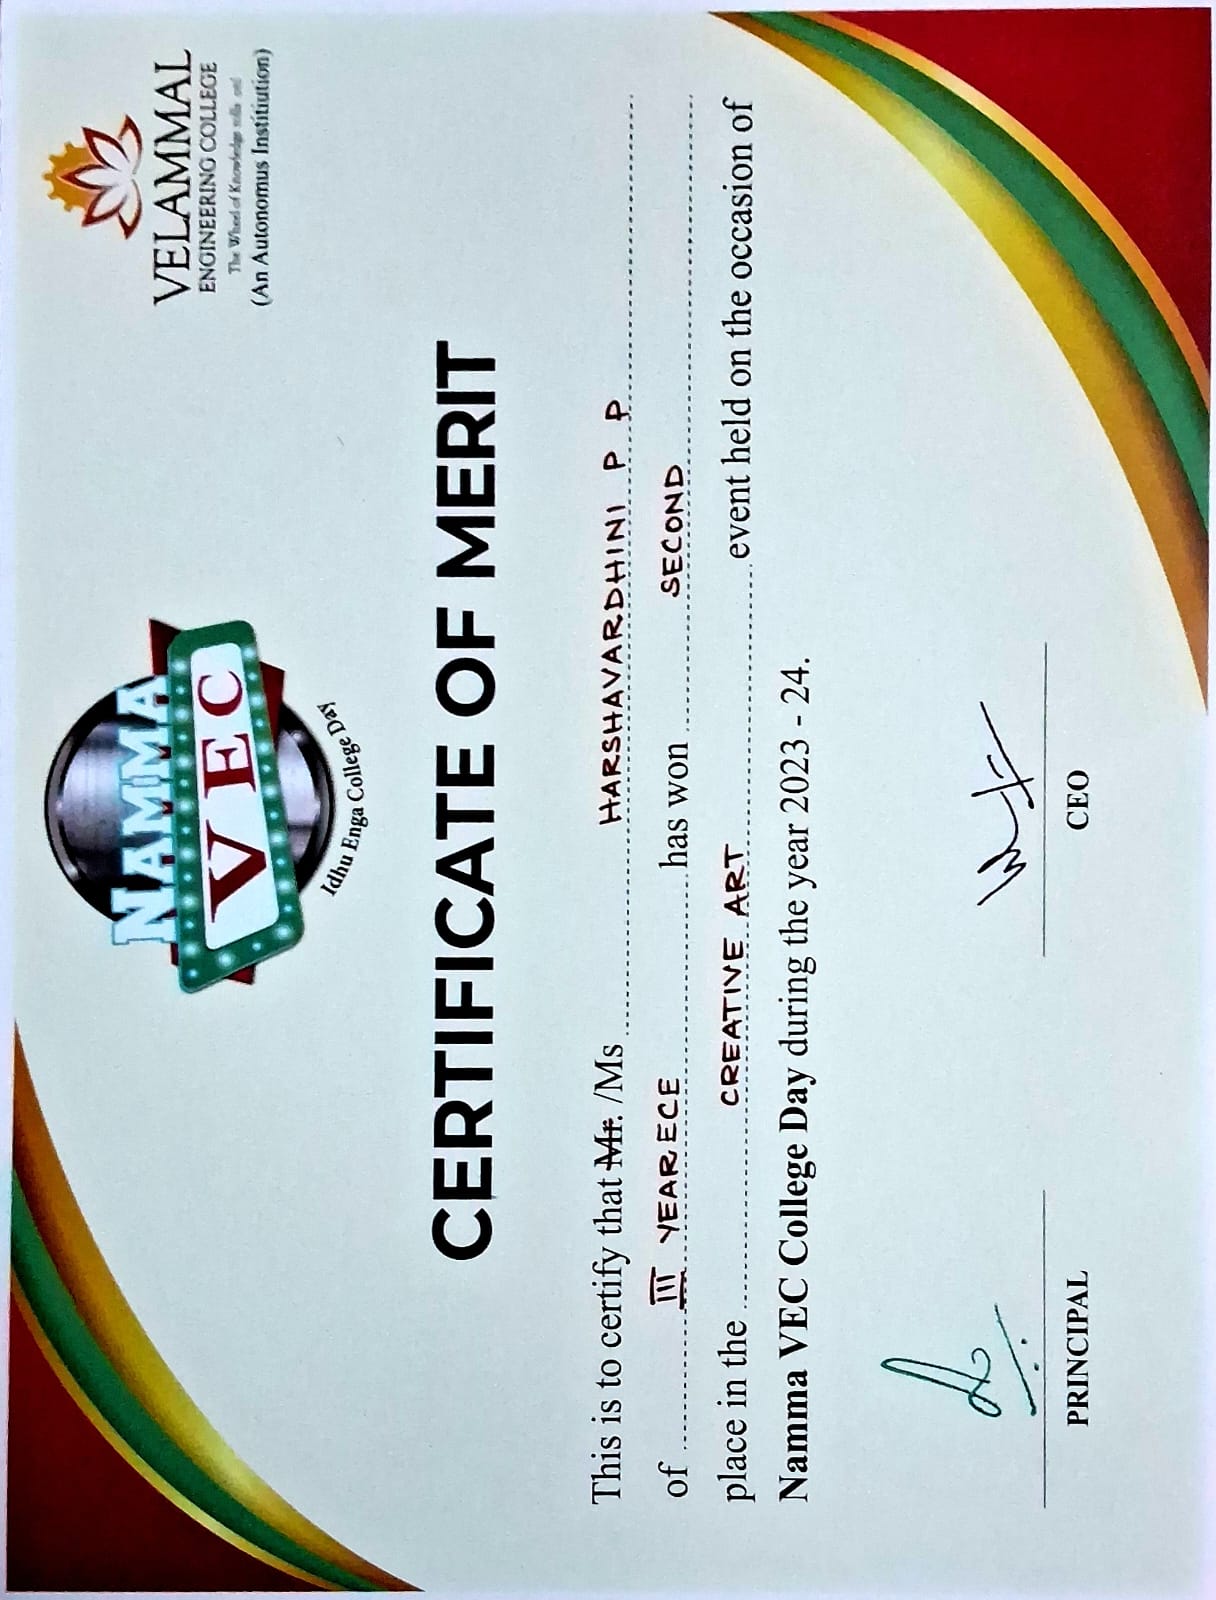 NAMMA
VEC
Idhu Enga College Day
VELAMMAL
ENGINEERING COLLEGE
The Wheel of Knowledge rolls on!
(An Autonomus Institiution)
CERTIFICATE OF MERIT
This is to certify that Mr. /Ms HARSHAVARDHINI P P
of III YEAR ECE has won SECOND
place in the CREATIVE ART event held on the occasion of
Namma VEC College Day during the year 2023 - 24.
PRINCIPAL
CEO